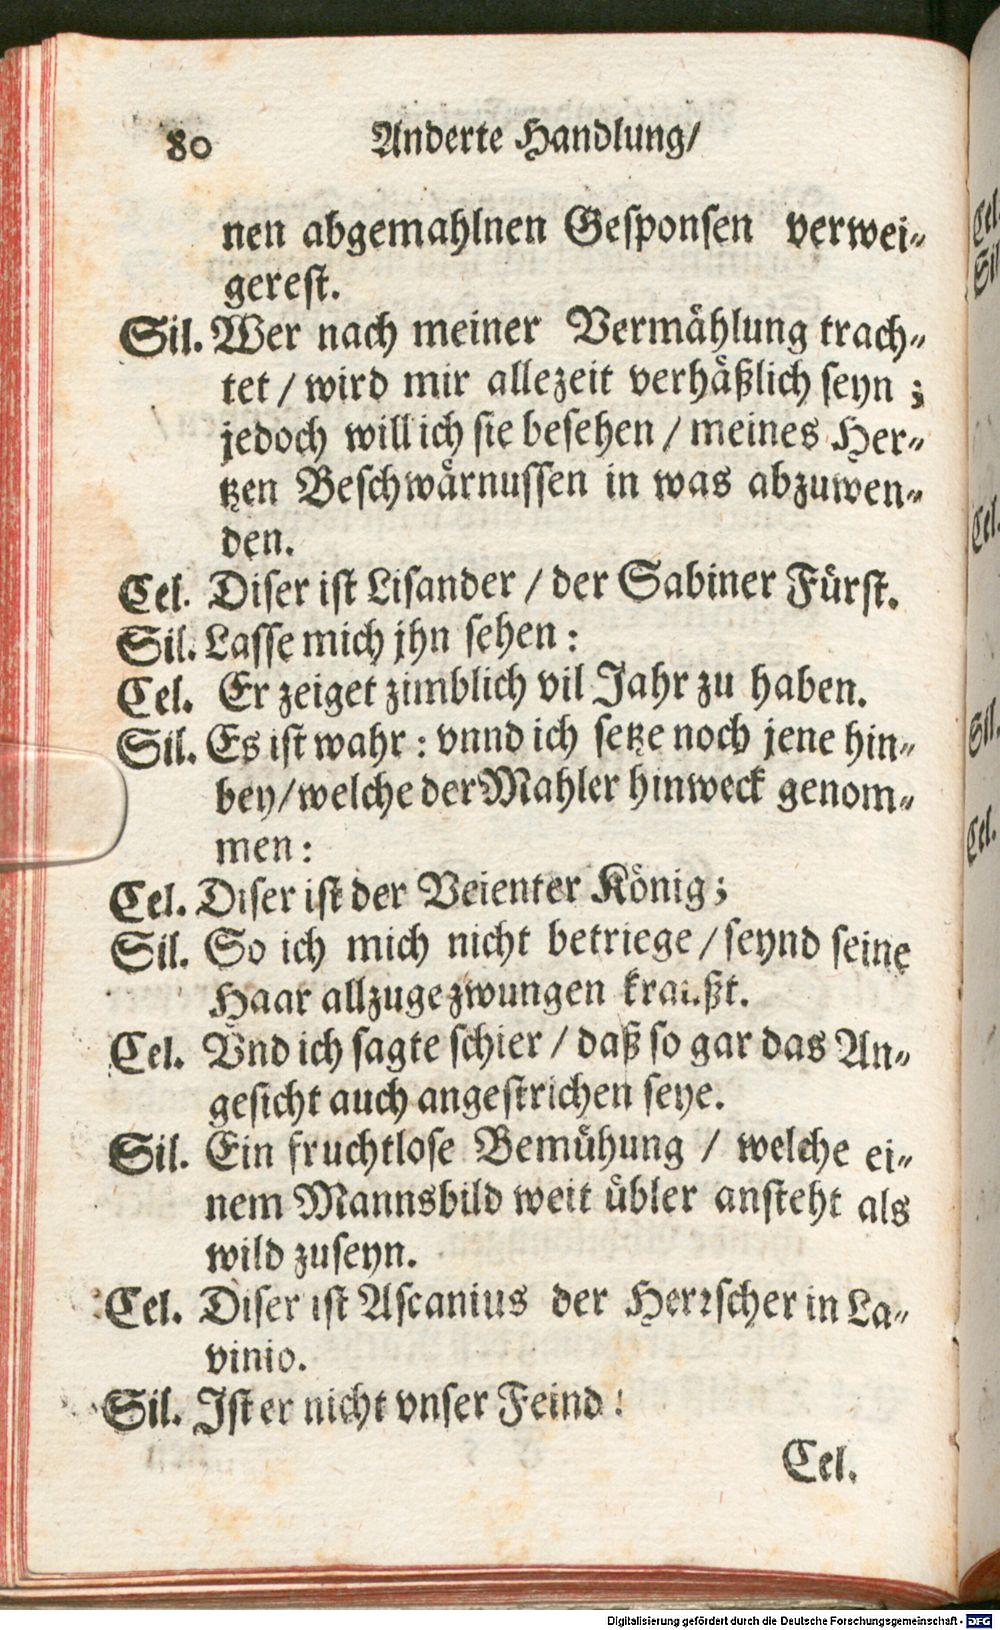 80 Anderte Handlung/
nen abgemahlnen Gesponsen verwei-
gerest.
Sil. Wer nach meiner Vermählung trach-
tet / wird mir allezeit verhäßlich seyn ;
jedoch will ich sie besehen / meines Her-
tzen Beschwärnussen in was abzuwen-
den.
Cel. Diser ist Lisander / der Sabiner Fürst.
Sil. Lasse mich jhn sehen :
Cel. Er zeiget zimblich vil Jahr zu haben.
Sil. Es ist wahr : vnnd ich setze noch jene hin-
bey/welche der Mahler hinweck genom-
men :
Cel. Diser ist der Veienter König ;
Sil. So ich mich nicht betriege / seynd seine
Haar allzugezwungen kraußt.
Cel. Vnd ich sagte schier / daß so gar das An-
gesicht auch angestrichen seye.
Sil. Ein fruchtlose Bemühung / welche ei-
nem Mannsbild weit übler ansteht als
wild zuseyn.
Cel. Diser ist Ascanius der Herrscher in La-
vinio.
Sil. Ist er nicht vnser Feind !
Cel.
Cel
Sil
Cel.
Sil.
Cel.
Digitalisierung gefördert durch die Deutsche Forschungsgemeinschaft - DFG